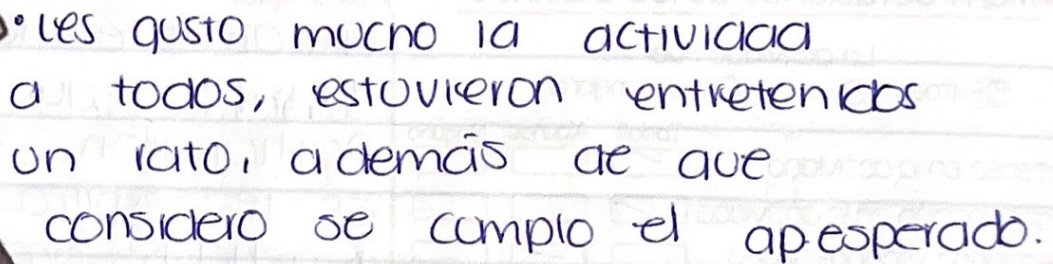 • Les gusto mucho la actividad
a todos, estuvieron entretenidos
un rato, además de que
considero se cumplo el ap. esperado.